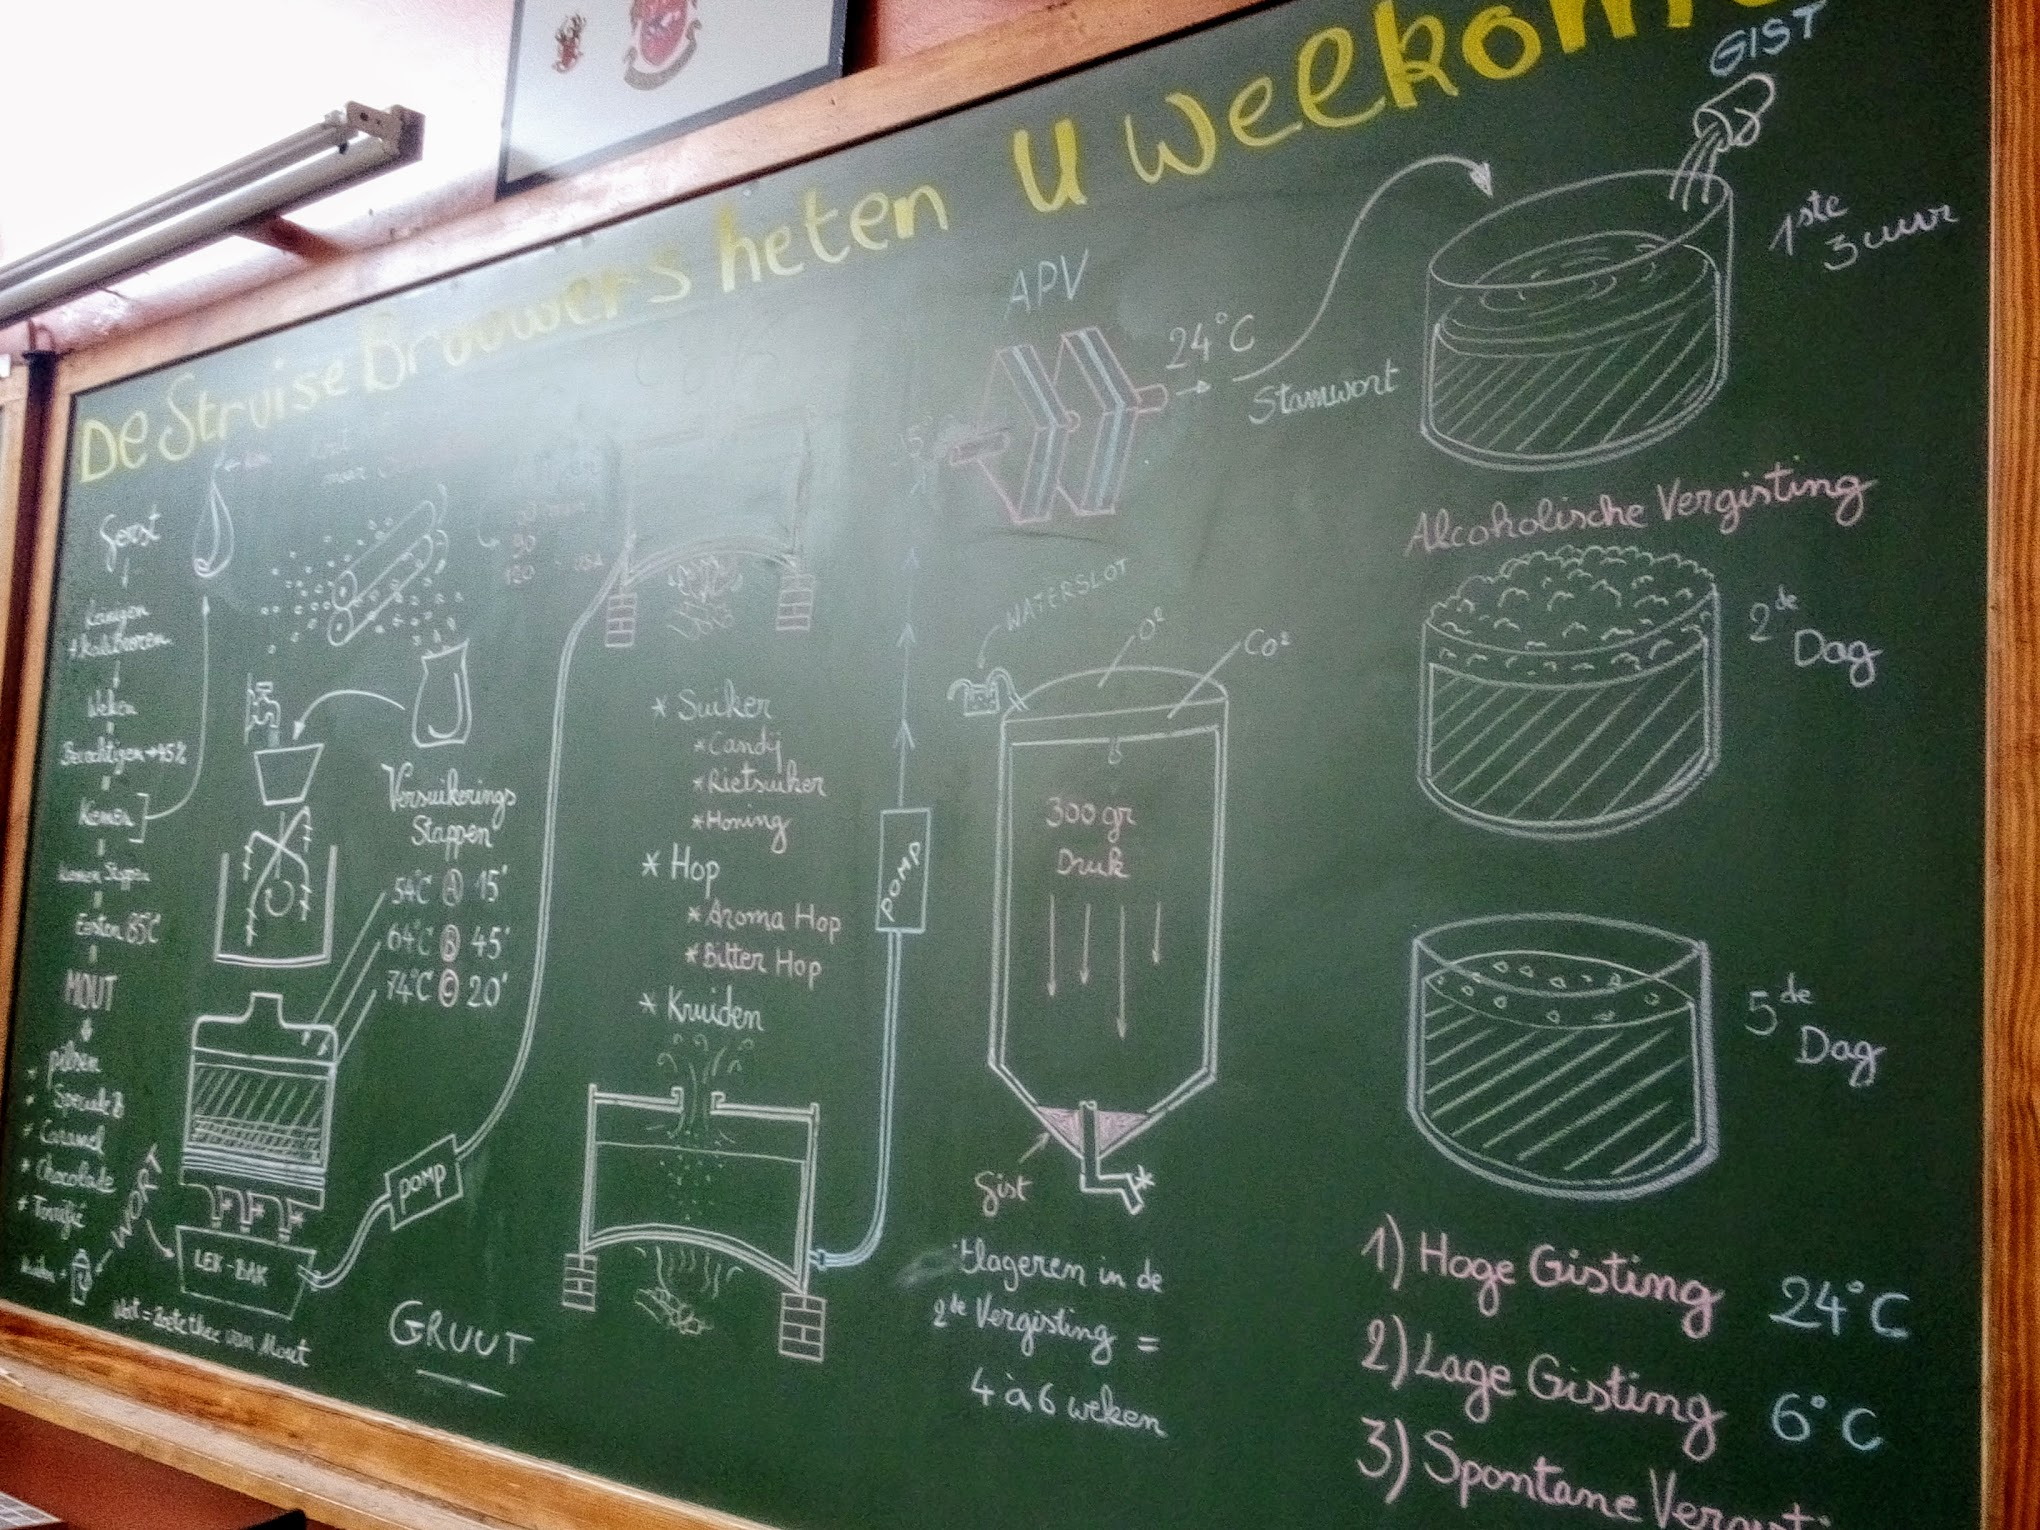 De Struise Brouwers heten U Welkom
GIST
1ste
3 uur
APV
24°C
Stamwort
Alcoholische Vergisting
2de
Dag
5de
Dag
1) Hoge Gisting 24°C
2) Lage Gisting 6°C
3) Spontane
Gerst
Weken
Kiemen
Eesten 85°C
MOUT
pilsen
* Caramel
* Chocolade
* Torrifié
WORT
LEK-BAK
Wort = Zoete thee van Mout
90
120
Versuikerings
Stappen
54°C A 15'
64°C B 45'
74°C C 20'
POMP
GRUUT
* Suiker
* Candij
* Rietsuiker
* Honing
* Hop
* Aroma Hop
* Bitter Hop
* Kruiden
POMP
WATERSLOT
O²
CO²
300 gr
Druk
Gist
'tlageren in de
2de Vergisting =
4 à 6 weken